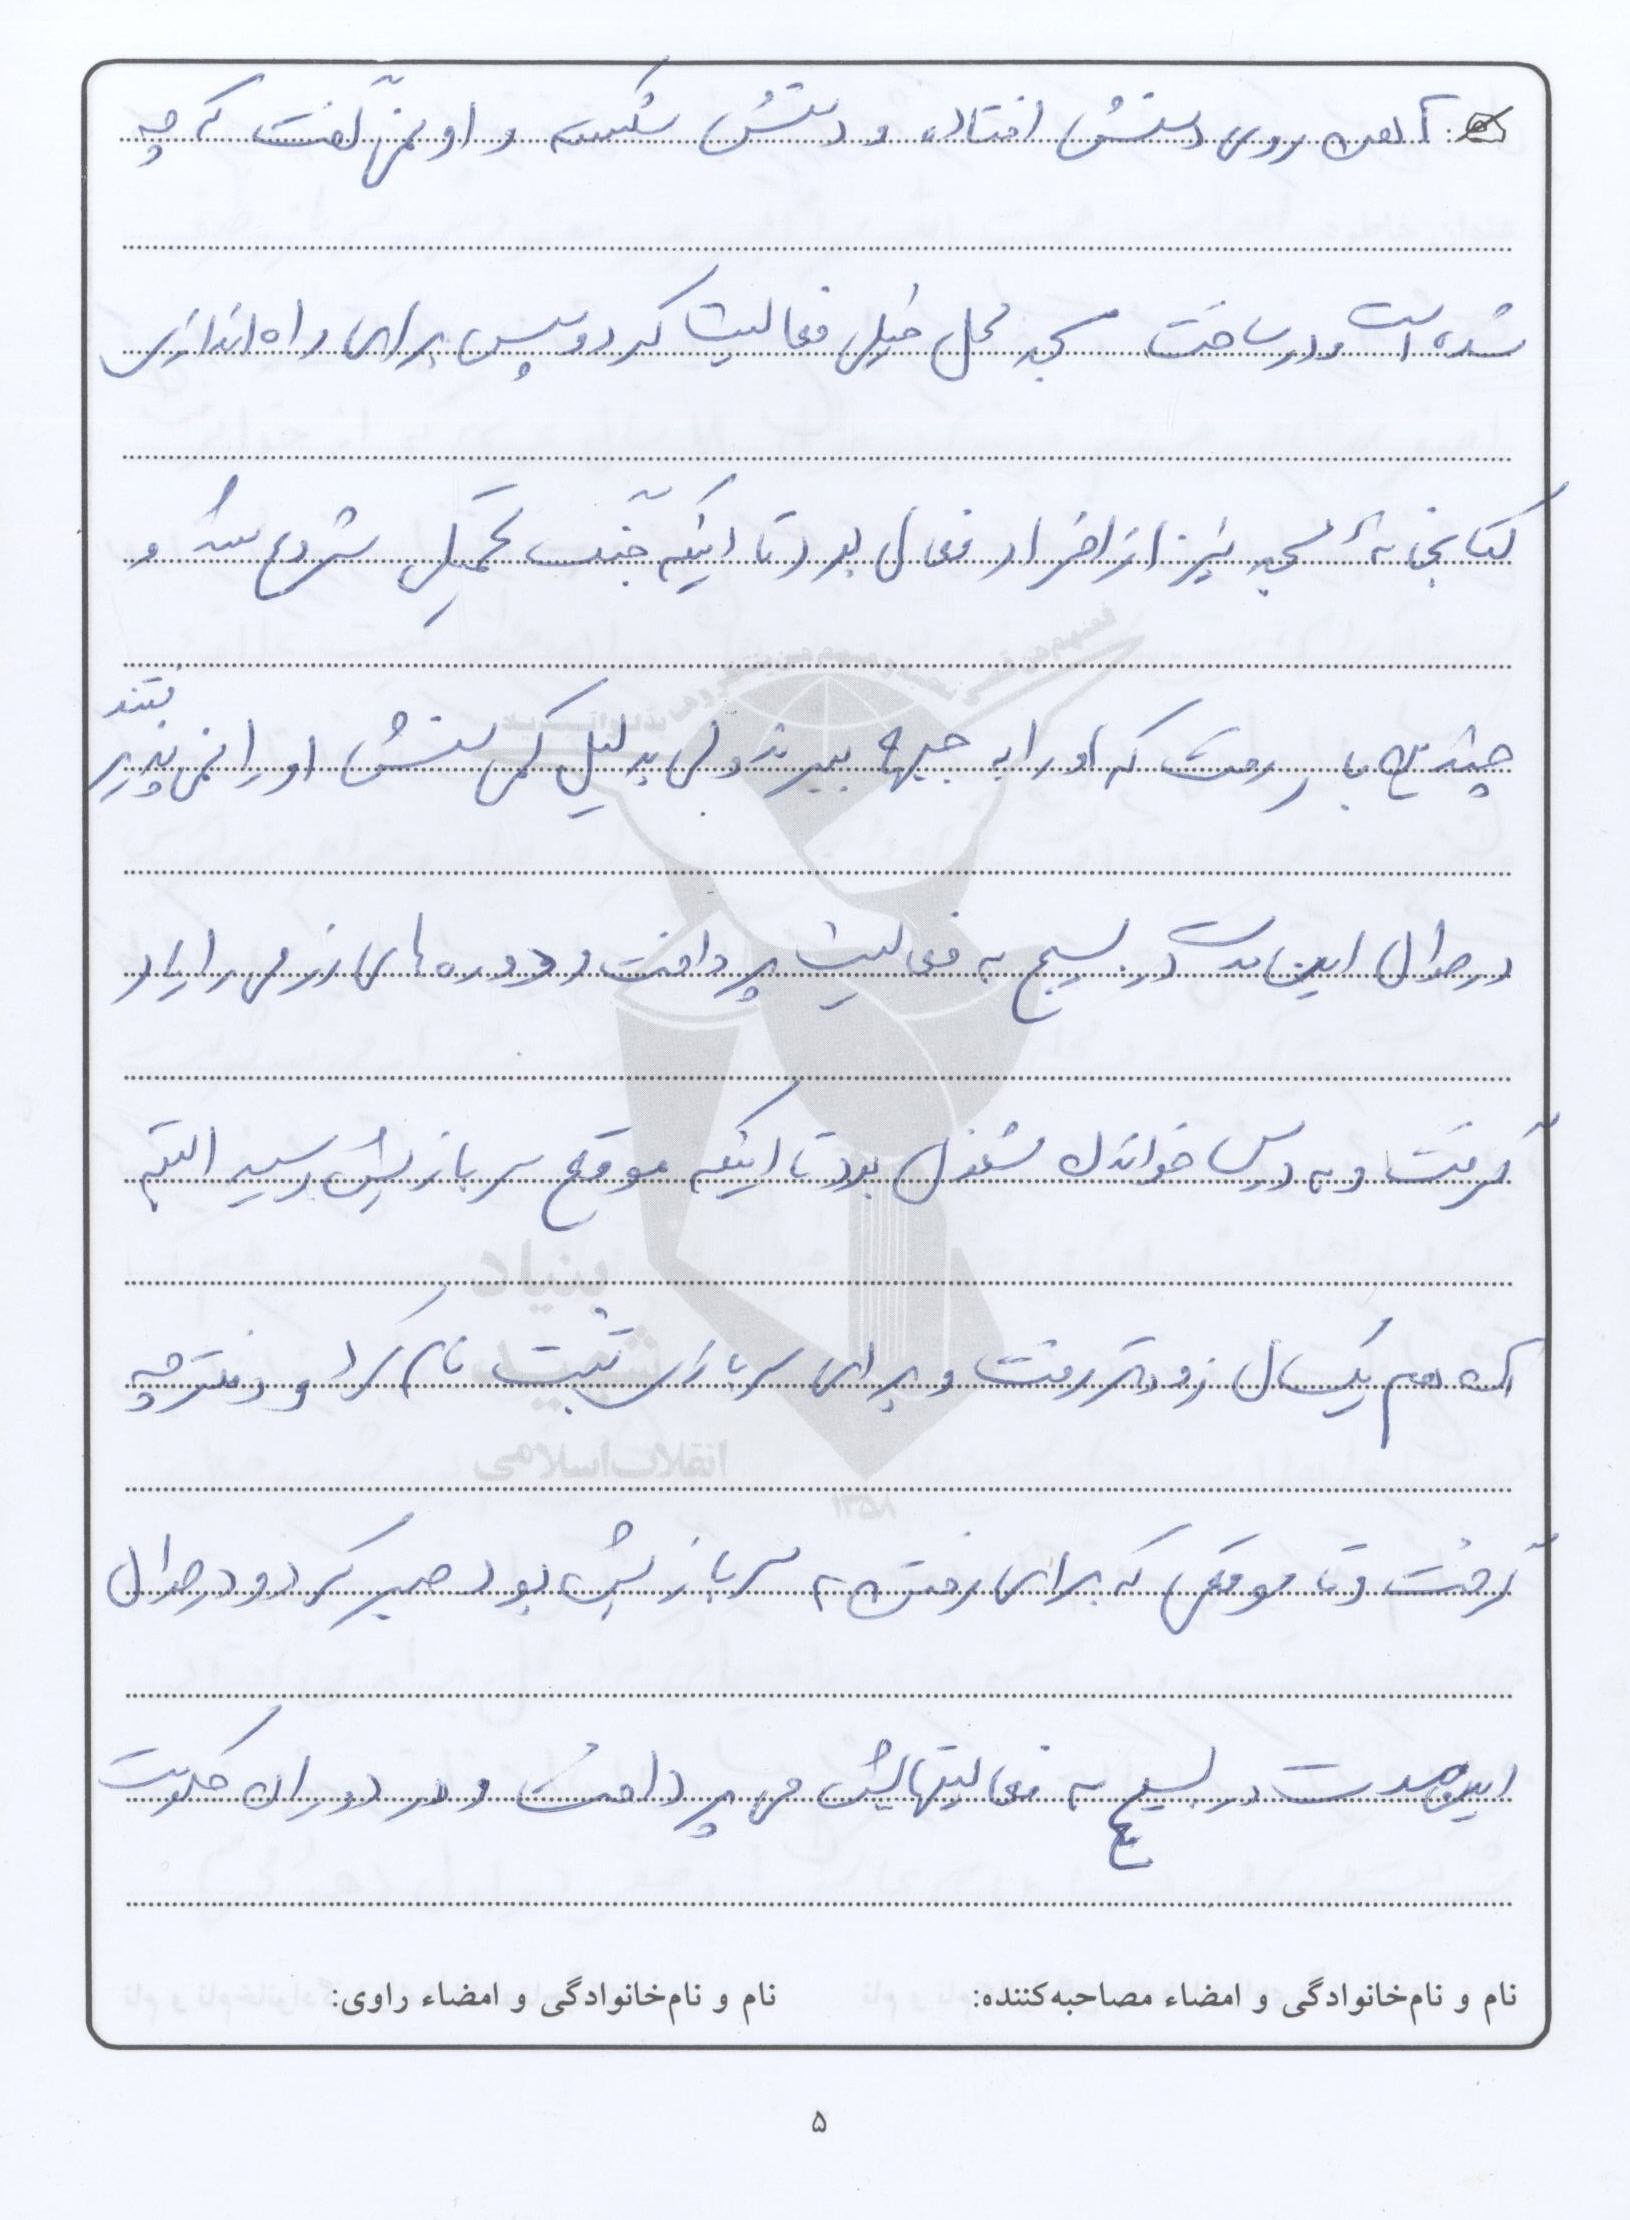 آهن روی دستش افتاده و دستش شکسته و او نمی گفت که چه
شده است و در ساخت مسجد محل خیلی فعالیت کرد و سپس برای راه اندازی
کتابخانهٔ مسجد نیز از افراد فعال بود تا اینکه جنگ تحمیلی شروع شد و
چندین بار رفت که او را به جبهه ببرند ولی بدلیل کمی سنش او را نمی پذیرفتند
در طول این مدت در بسیج به فعالیت پرداخت و دوره های رزمی را یاد
گرفت و به درس خواندن مشغول بود تا اینکه موقع سربازیش رسید البته
آن هم یکسال زودتر رفت و برای سربازی ثبت نام کرد و دفترچه
گرفت و تا موقعی که برای رفتن به سربازیش بود صبر کرد و در طول
این مدت در بسیج به فعالیتهایش می پرداخت و در دوران حکومت
نام و نام‌خانوادگی و امضاء مصاحبه‌کننده: نام و نام‌خانوادگی و امضاء راوی:
بنیاد
شهید
انقلاب اسلامی
۱۳۵۸
۵